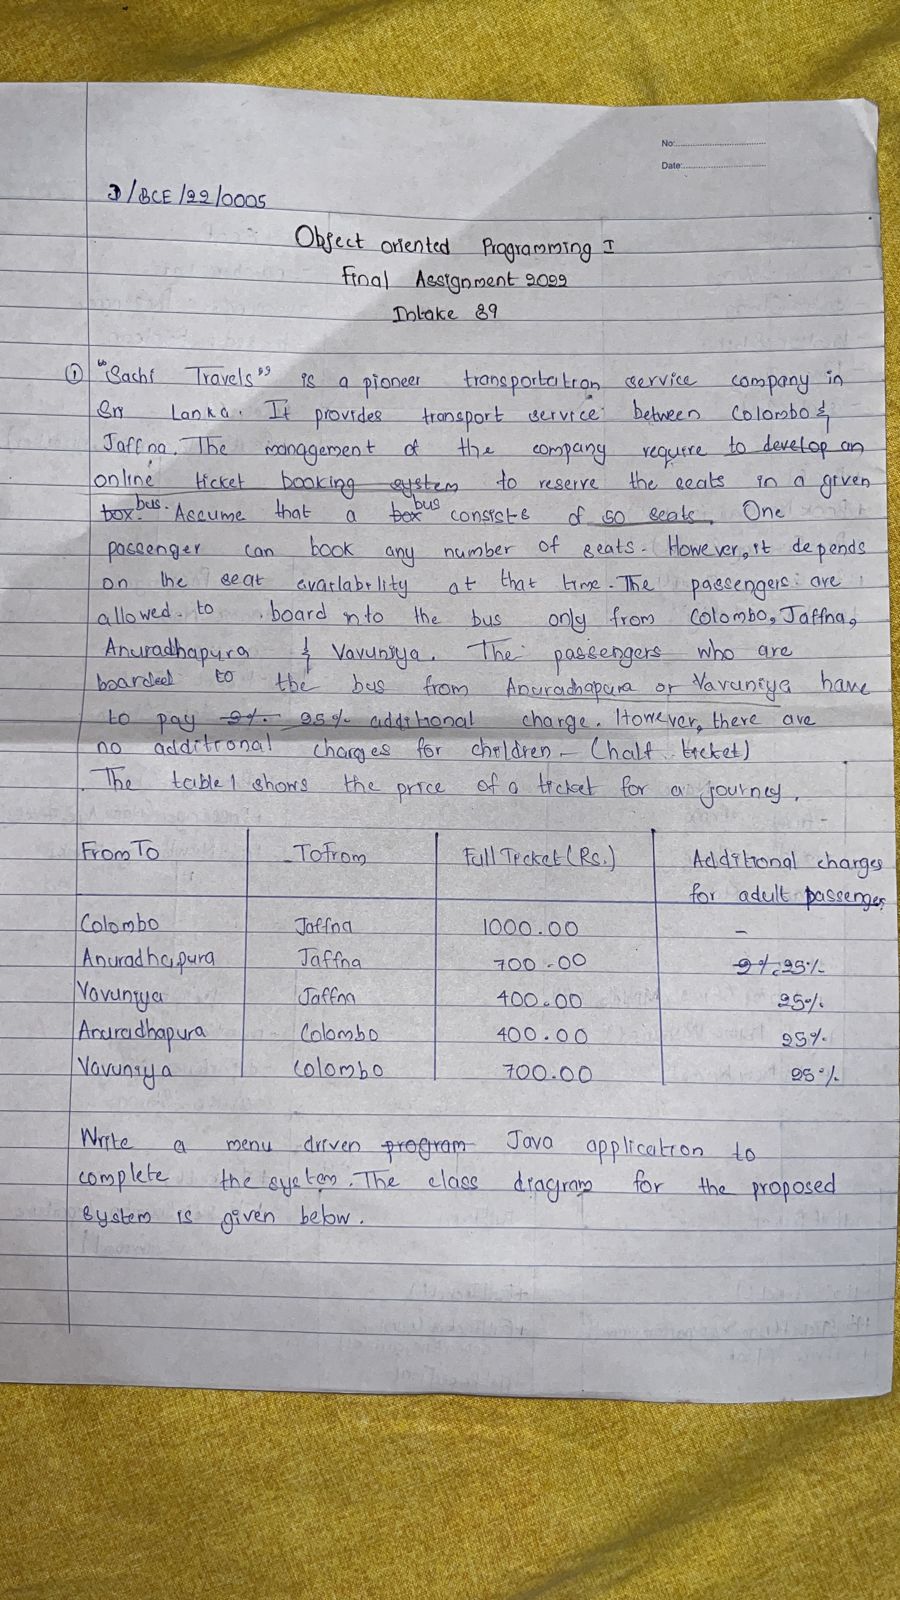 No:
Date:
D/BCE/22/0005
Object oriented Programming I
Final Assignment 2022
Intake 39
① "Sachi Travels" is a pioneer transportation service company in
Sri Lanka. It provides transport service between Colombo &
Jaffna. The management of the company require to develop an
online ticket booking system to reserve the seats in a given
box bus. Assume that a box bus consists of 50 seats. One
passenger can book any number of seats. However, it depends
on the seat availability at that time. The passengers are
allowed to board into the bus only from Colombo, Jaffna,
Anuradhapura & Vavuniya. The passengers who are
boarded to the bus from Anuradhapura or Vavuniya have
to pay 2%. 25% additional charge. However, there are
no additional charges for children - (half ticket)
The table 1 shows the price of a ticket for a journey.
From To | To From | Full Ticket (Rs.) | Additional charges
for adult passenger
Colombo Jaffna 1000.00 -
Anuradhapura Jaffna 700.00 2%. 25%
Vavuniya Jaffna 400.00 25%
Anuradhapura Colombo 400.00 25%
Vavuniya Colombo 700.00 25%
Write a menu driven program Java application to
complete the system. The class diagram for the proposed
system is given below.